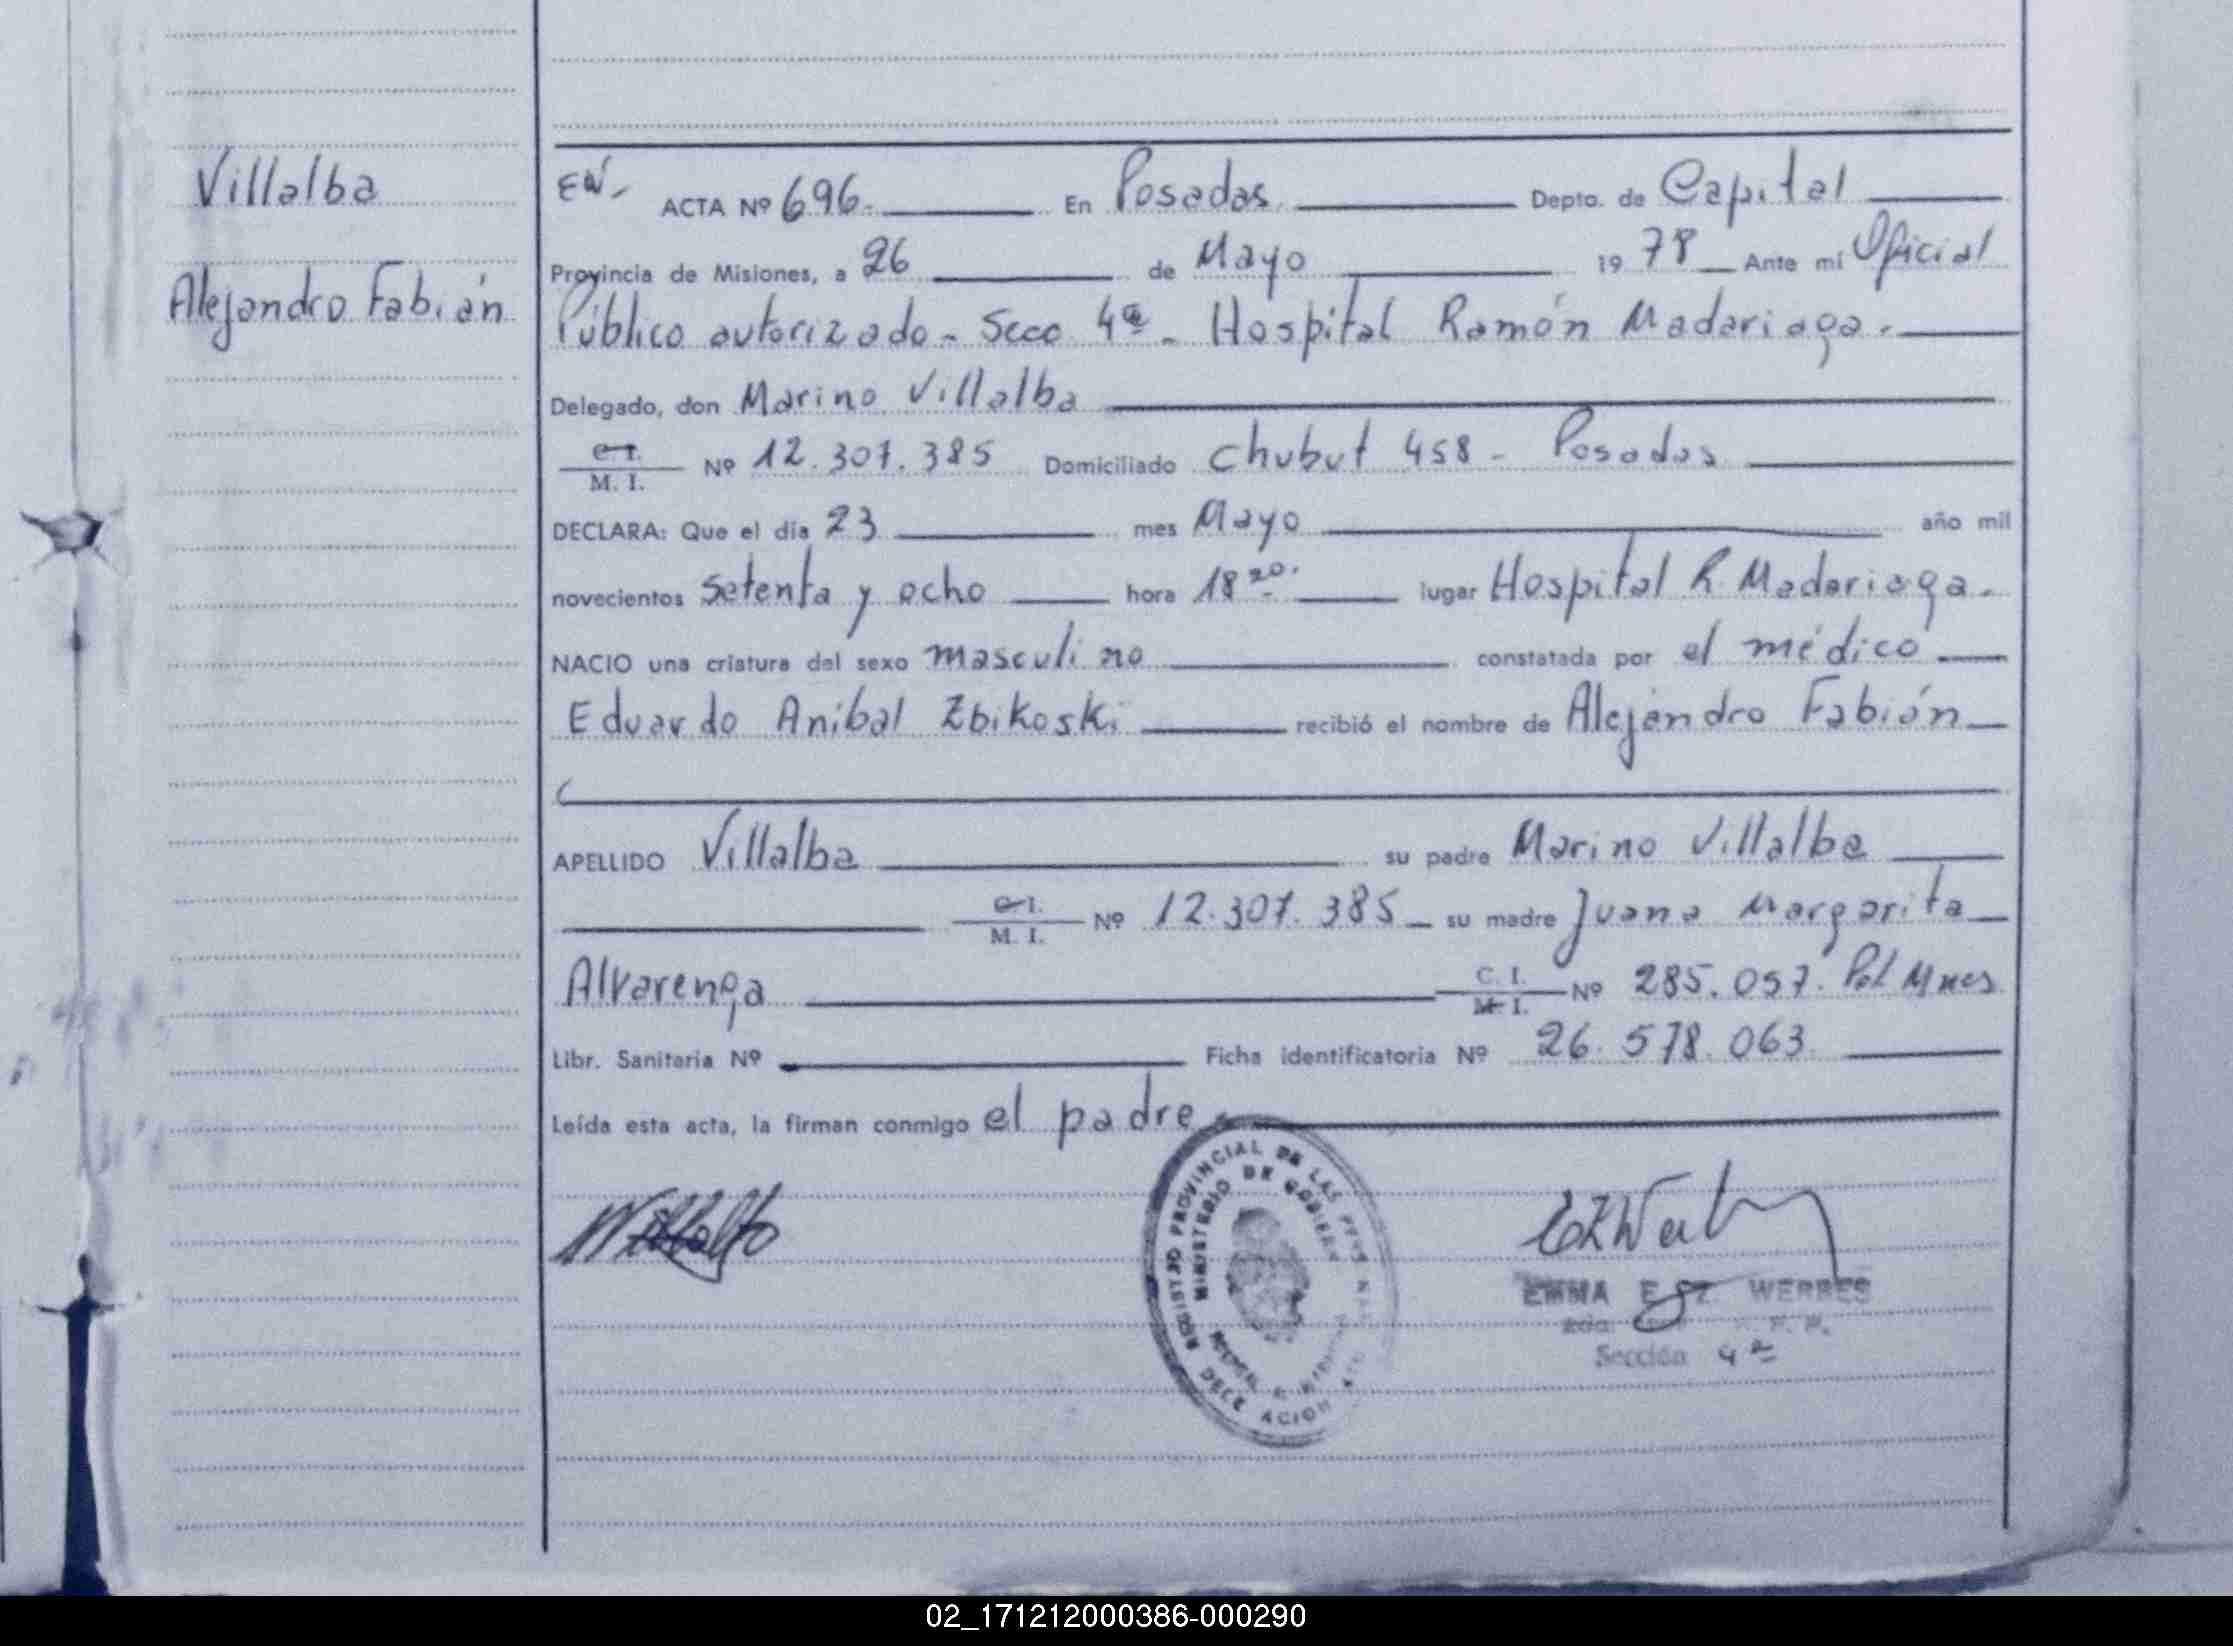 Villalba
Alejandro Fabián
ACTA Nº 696. En Posadas Depto. de Capital
Provincia de Misiones, a 26 de Mayo 1978 Ante mí Oficial
Público autorizado - Secc 4ª - Hospital Ramón Madariaga.
Delegado, don Marino Villalba
C.I. / M. I. Nº 12.307.385 Domiciliado Chubut 458 - Posadas
DECLARA: Que el día 23 mes Mayo año mil
novecientos setenta y ocho hora 18 20. lugar Hospital R. Madariaga.
NACIO una criatura del sexo masculino constatada por el médico
Eduardo Aníbal Zbikoski recibió el nombre de Alejandro Fabián
APELLIDO Villalba su padre Marino Villalba
C.I. / M. I. Nº 12.307.385 su madre Juana Margarita
Alvarenga C. I. / M. I. Nº 285.057. Pol Mnes
Libr. Sanitaria Nº Ficha identificatoria Nº 26.578.063
Leída esta acta, la firman conmigo el padre
REGISTRO PROVINCIAL DE LAS PERSONAS
MINISTERIO DE GOBIERNO
EMMA E. WERBES
Sección 4ª
02_171212000386-000290